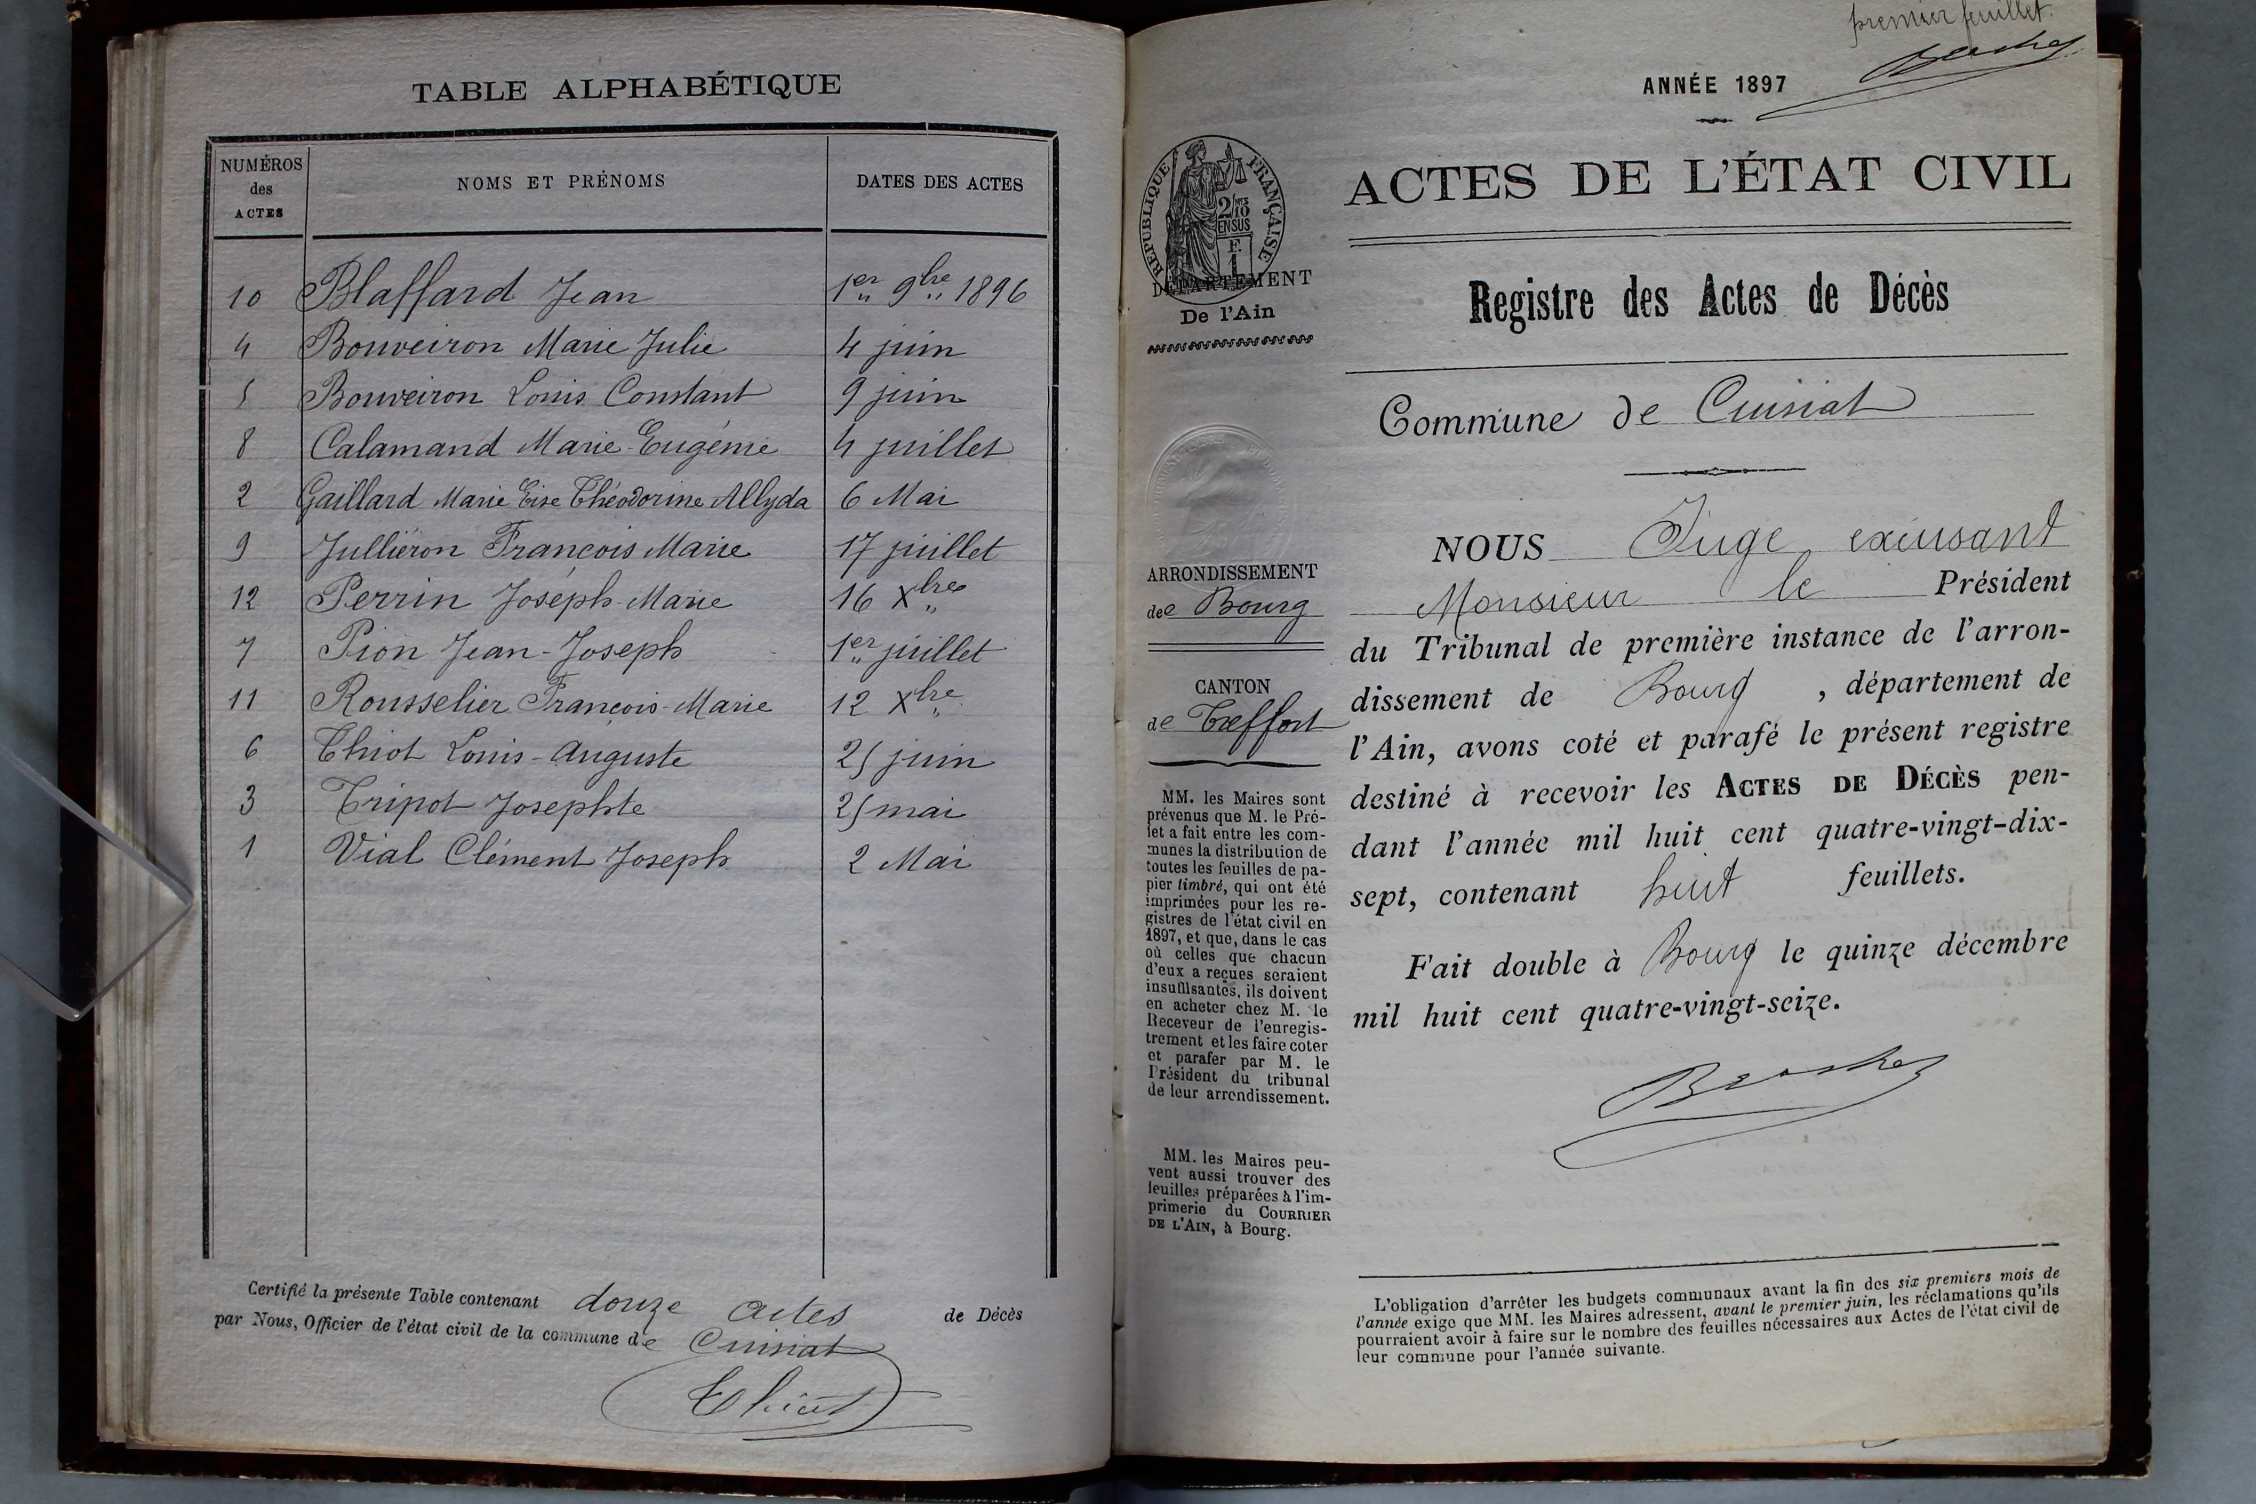 TABLE ALPHABÉTIQUE
NUMÉROS
des
ACTES
NOMS ET PRÉNOMS
DATES DES ACTES
10 Blaffard Jean 1er 9bre 1896
4 Bouveiron Marie Julie 4 juin
5 Bouveiron Louis Constant 9 juin
8 Calamand Marie-Eugénie 4 juillet
2 Gaillard Marie Théodorine 6 Mai
9 Julliéron François Marie 17 juillet
12 Perrin Joseph-Marie 16 Xbre
7 Pion Jean-Joseph 1er juillet
11 Rousselier François-Marie 12 Xbre
6 Thiot Louis-Auguste 25 juin
3 Tripot Josephte 25 mai
1 Vial Clément Joseph 2 Mai
Certifié la présente Table contenant douze actes de Décès
par Nous, Officier de l'état civil de la commune de Cuisiat
Thiot
premier feuillet.
ANNÉE 1897
RÉPUBLIQUE FRANÇAISE
2/10
EN SUS
F.
1
ACTES DE L'ÉTAT CIVIL
DÉPARTEMENT
De l'Ain
Registre des Actes de Décès
Commune de Cuisiat
ARRONDISSEMENT
de Bourg
CANTON
de Treffort
MM. les Maires sont
prévenus que M. le Pré-
fet a fait entre les com-
munes la distribution de
toutes les feuilles de pa-
pier timbré, qui ont été
imprimées pour les re-
gistres de l'état civil en
1897, et que, dans le cas
où celles que chacun
d'eux a reçues seraient
insuffisantes, ils doivent
en acheter chez M. le
Receveur de l'enregis-
trement et les faire coter
et parafer par M. le
Président du tribunal
de leur arrondissement.
MM. les Maires peu-
vent aussi trouver des
feuilles préparées à l'im-
primerie du COURRIER
DE L'AIN, à Bourg.
NOUS Juge excusant
Monsieur le Président
du Tribunal de première instance de l'arron-
dissement de Bourg, département de
l'Ain, avons coté et parafé le présent registre
destiné à recevoir les ACTES DE DÉCÈS pen-
dant l'année mil huit cent quatre-vingt-dix-
sept, contenant huit feuillets.
Fait double à Bourg le quinze décembre
mil huit cent quatre-vingt-seize.
L'obligation d'arrêter les budgets communaux avant la fin des six premiers mois de
l'année exige que MM. les Maires adressent, avant le premier juin, les réclamations qu'ils
pourraient avoir à faire sur le nombre des feuilles nécessaires aux Actes de l'état civil de
leur commune pour l'année suivante.